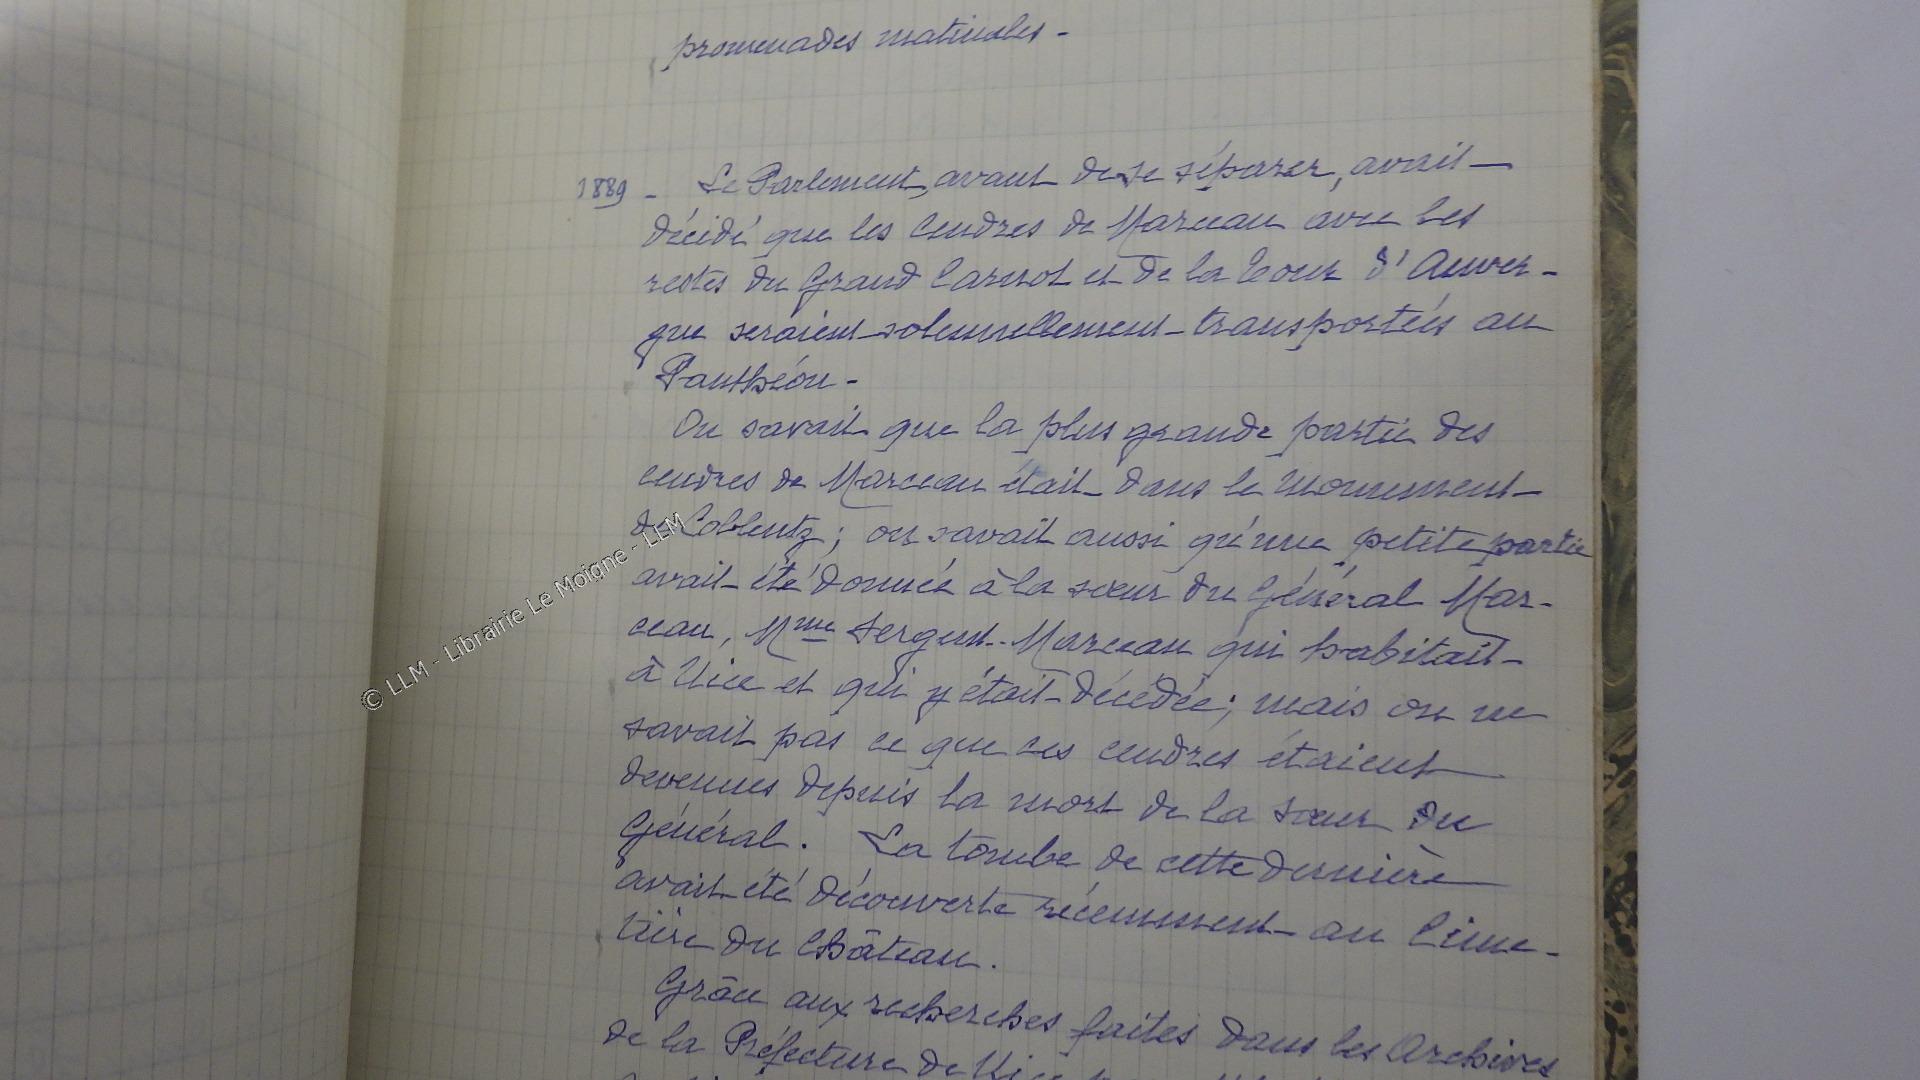 promenades matinales -
1889 - Le Parlement, avant de se séparer, avait
décidé que les Cendres de Marceau avec les
restes du Grand Carnot et de la Tour d'Auver-
gne seraient solennellement transportées au
Panthéon -
On savait que la plus grande partie des
cendres de Marceau était dans le monument
de Coblentz ; on savait aussi qu'une petite partie
avait été donnée à la sœur du Général Mar-
ceau, Mme Sergent-Marceau qui habitait
à Nice et qui y était décédée ; mais on ne
savait pas ce que ces cendres étaient
devenues depuis la mort de la sœur du
Général. La tombe de cette dernière
avait été découverte récemment au Cime-
tière du Château.
Grâce aux recherches faites dans les Archives
de la Préfecture de Nice
© LLM - Librairie Le Moigne - LLM